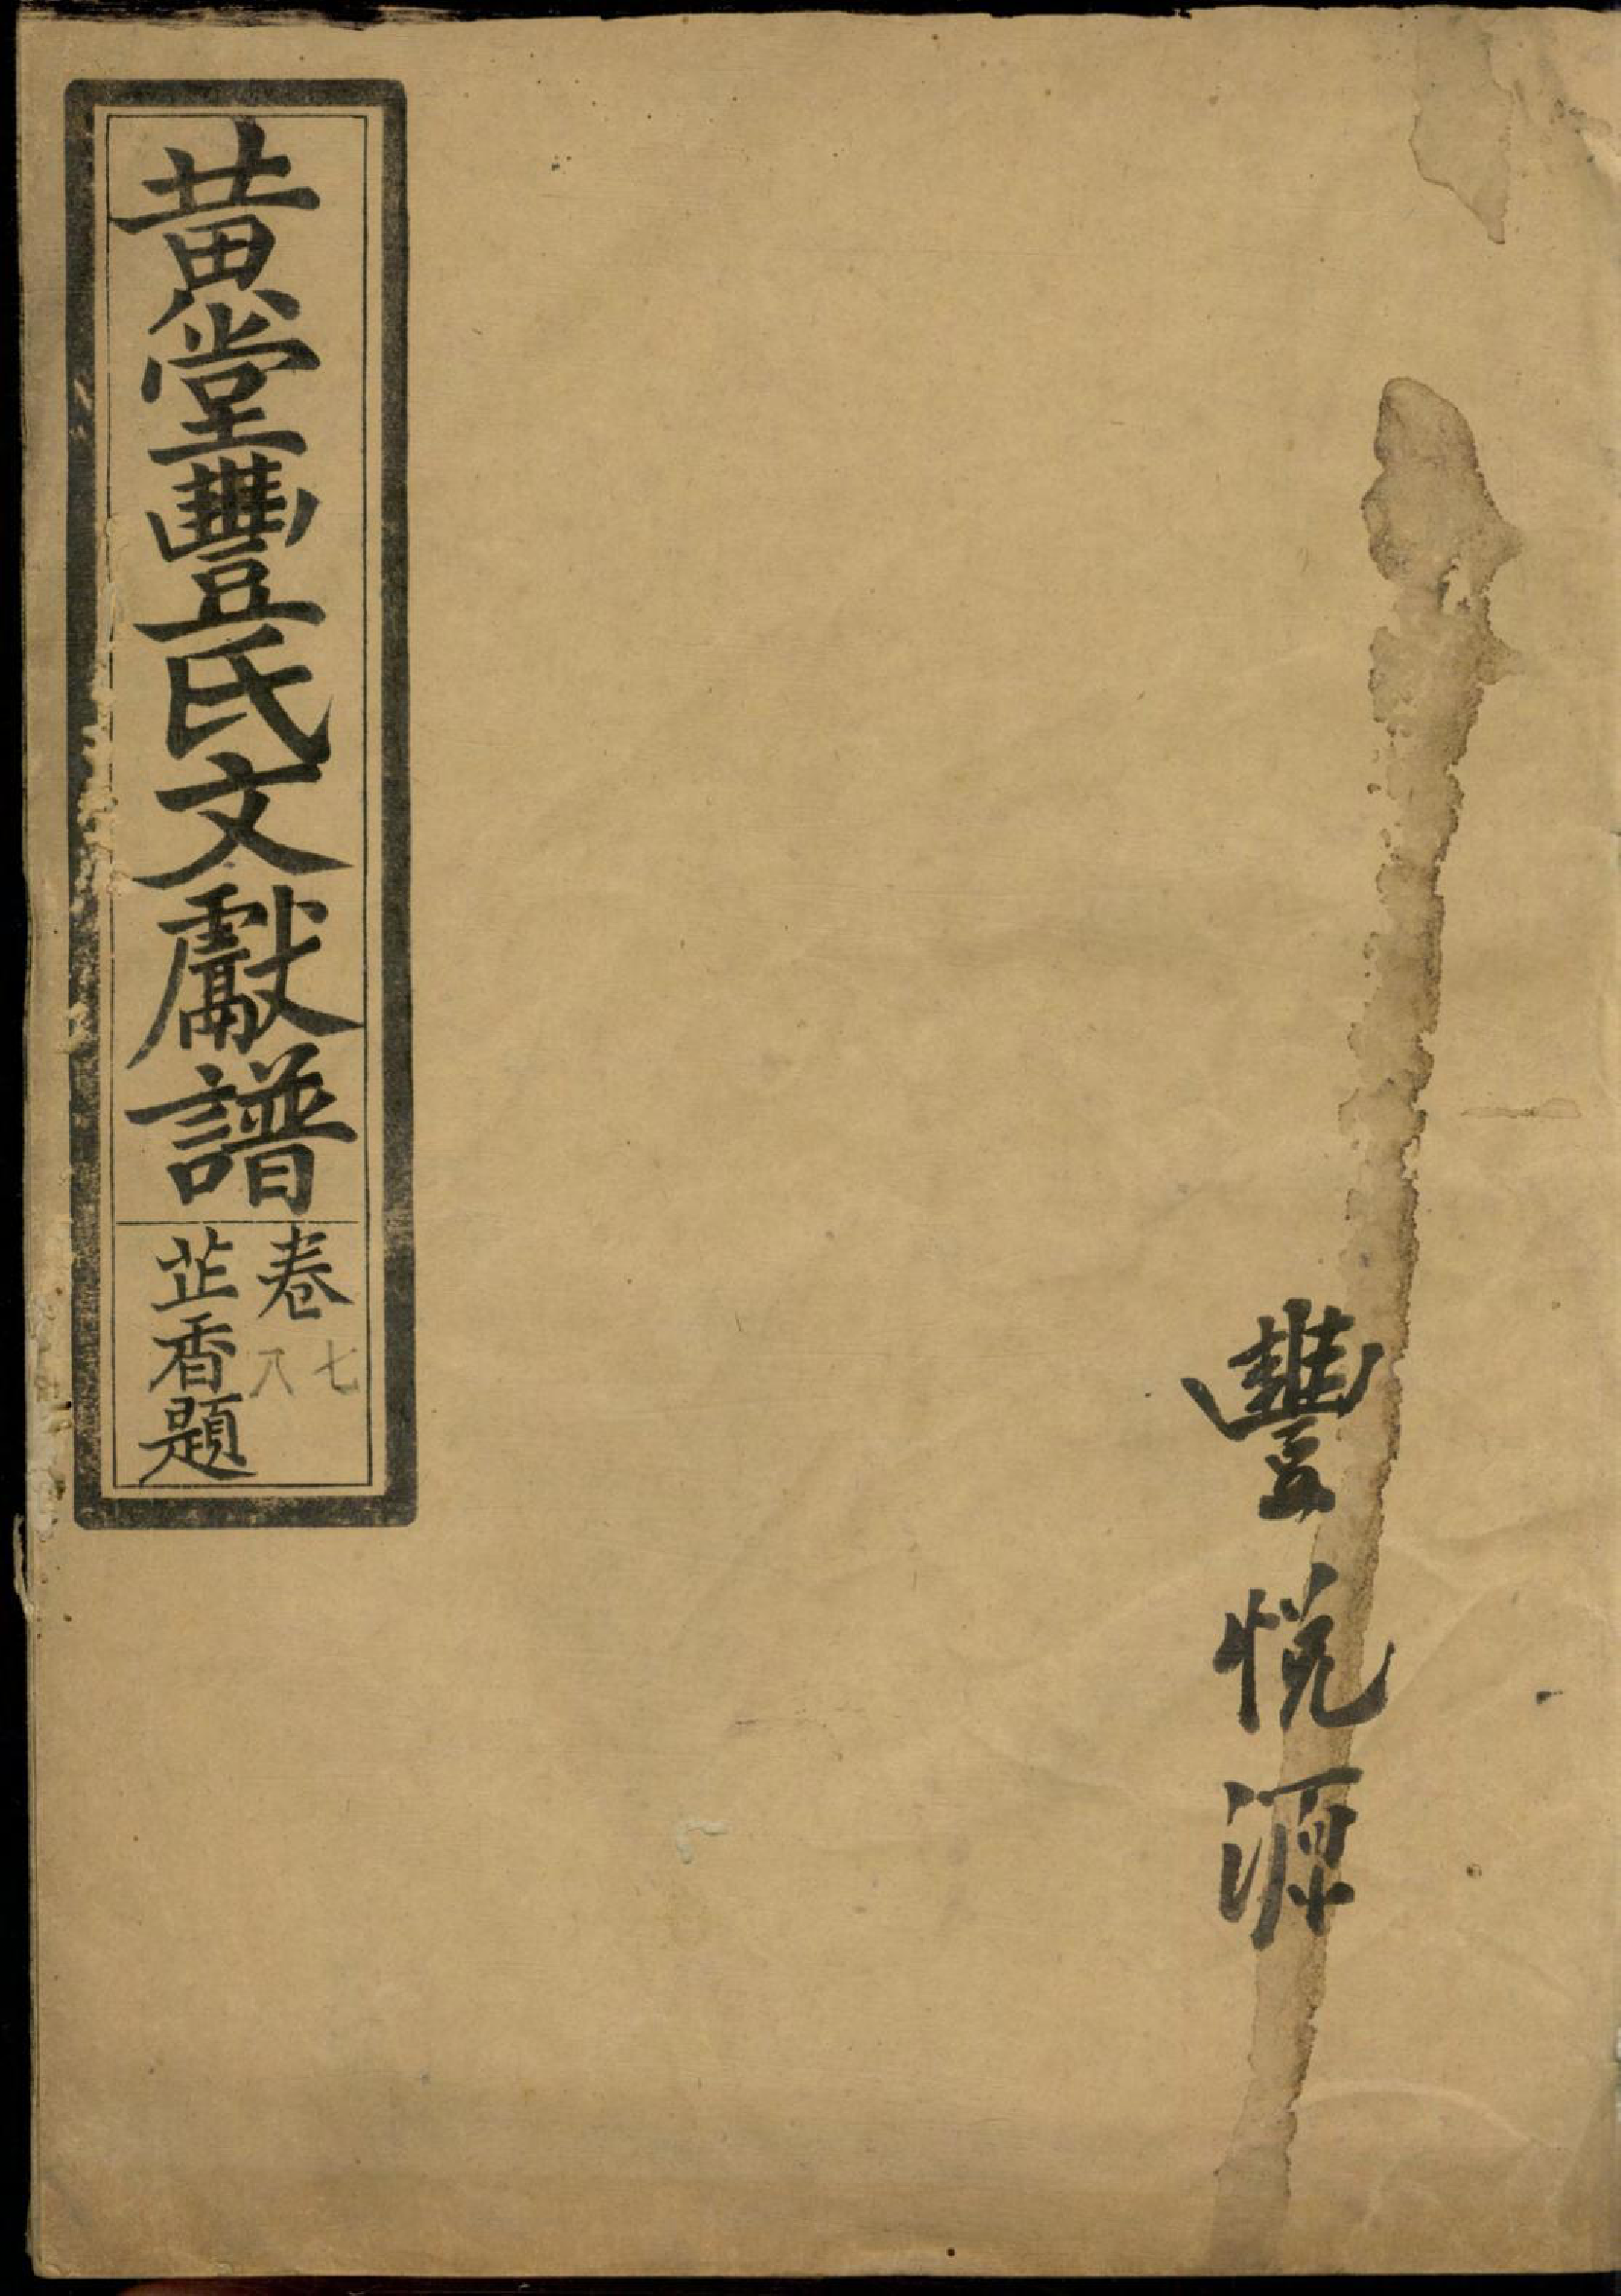 豐悅源
黃堂豐氏文獻譜
卷七八
芷香題